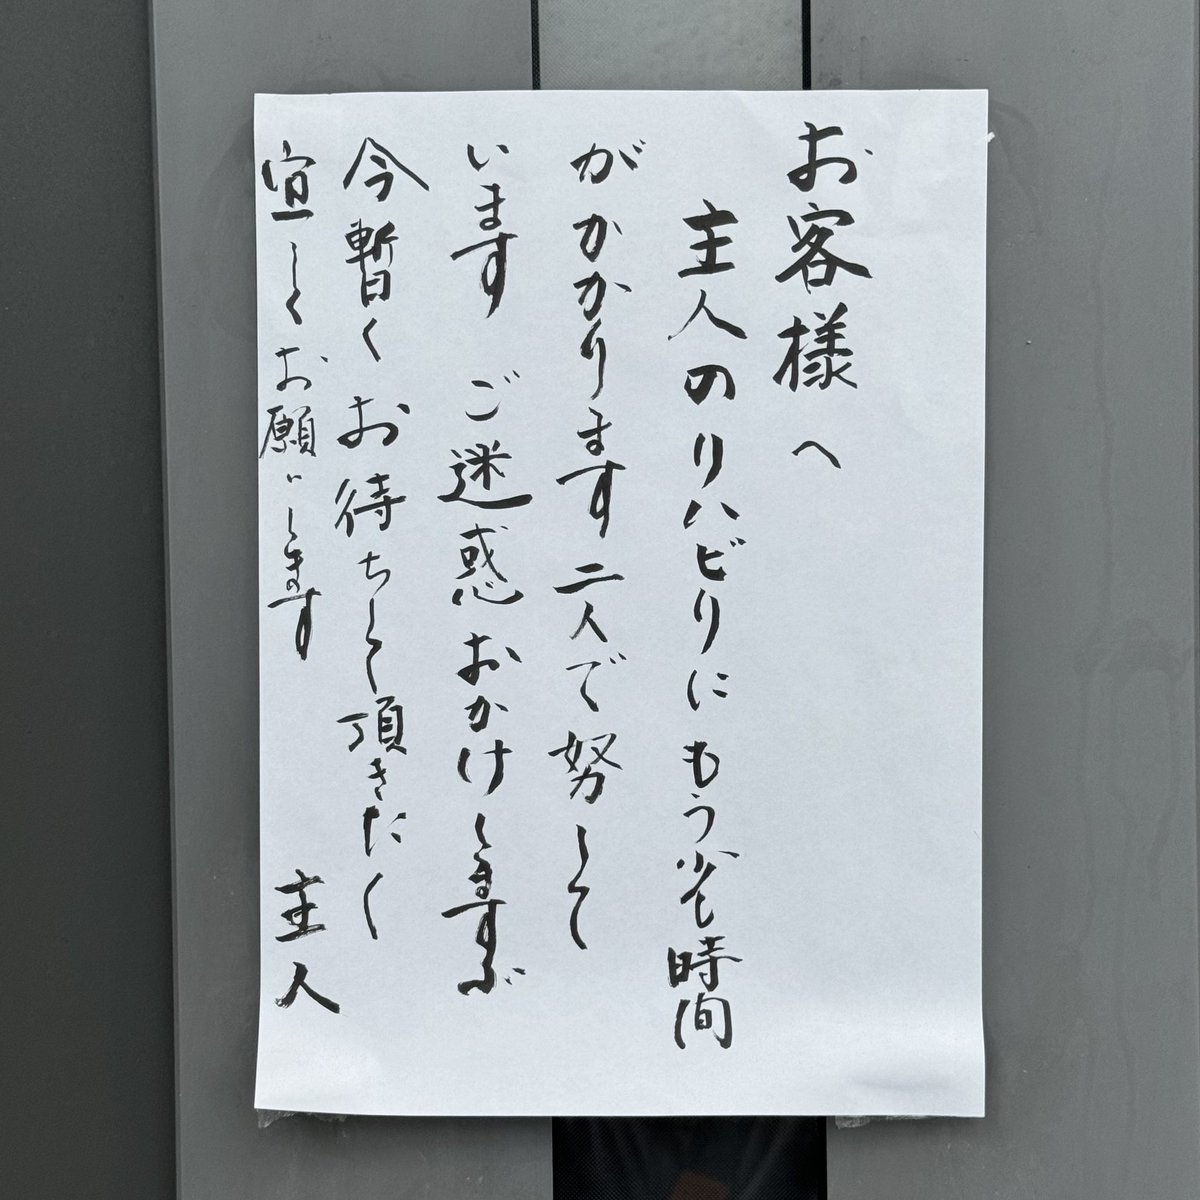 お客様へ
主人のリハビリにもう少し時間
がかかります二人で努して
います ご迷惑おかけしますが
今暫くお待ちして頂きたく
宜しくお願いします 主人